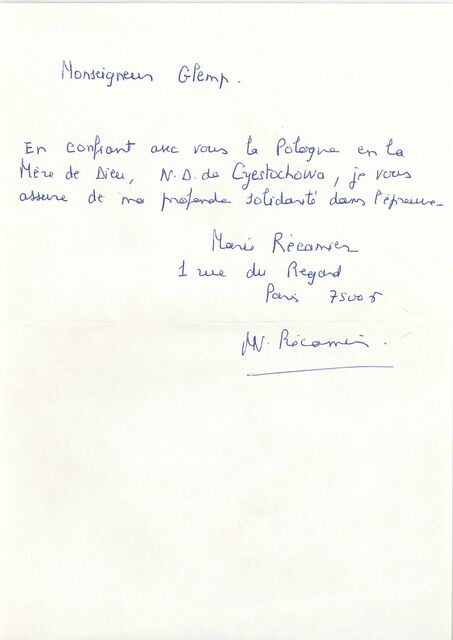 Monseigneur Glemp.
En confiant avec vous la Pologne en la
Mère de Dieu, N.D. de Czestochowa, je vous
assure de ma profonde solidarité dans l'épreuve.
Marie Récamier
1 rue du Regard
Paris 75006
MN. Récamier.